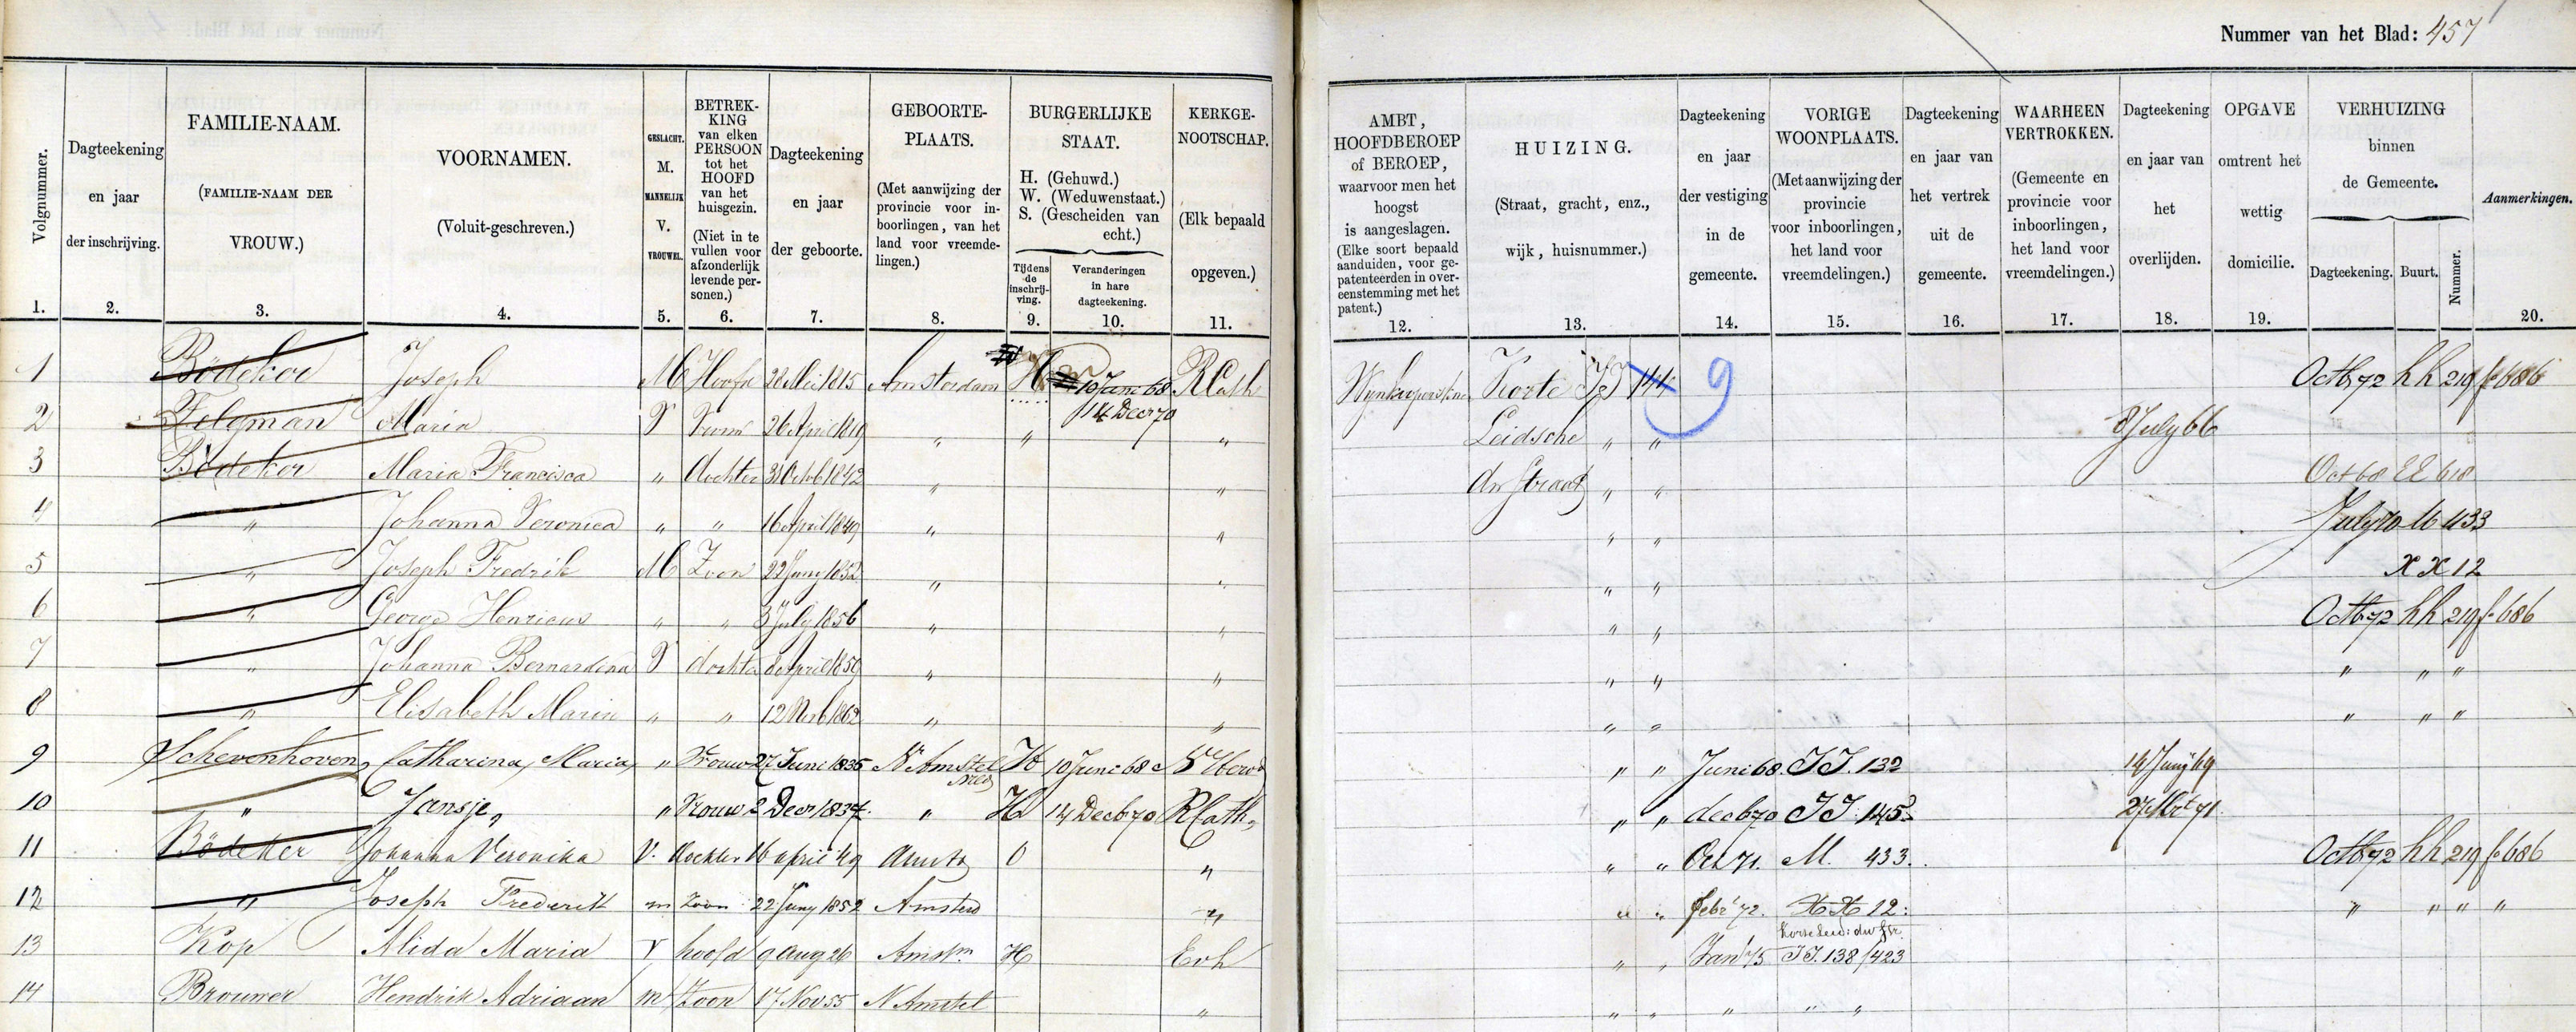 Nummer van het Blad: 457
Volgnummer. 1.
Dagteekening en jaar der inschrijving. 2.
FAMILIE-NAAM. (FAMILIE-NAAM DER VROUW.) 3.
VOORNAMEN. (Voluit-geschreven.) 4.
GESLACHT. M. MANNELIJK V. VROUWEL. 5.
BETREK-KING van elken PERSOON tot het HOOFD van het huisgezin. (Niet in te vullen voor afzonderlijk levende per-sonen.) 6.
Dagteekening en jaar der geboorte. 7.
GEBOORTE-PLAATS. (Met aanwijzing der provincie voor in-boorlingen, van het land voor vreemde-lingen.) 8.
BURGERLIJKE STAAT. H. (Gehuwd.) W. (Weduwenstaat.) S. (Gescheiden van echt.)
Tijdens de inschrij-ving. 9.
Veranderingen in hare dagteekening. 10.
KERKGE-NOOTSCHAP. (Elk bepaald opgeven.) 11.
AMBT, HOOFDBEROEP of BEROEP, waarvoor men het hoogst is aangeslagen. (Elke soort bepaald aanduiden, voor ge-patenteerden in over-eenstemming met het patent.) 12.
HUIZING. (Straat, gracht, enz., wijk, huisnummer.) 13.
Dagteekening en jaar der vestiging in de gemeente. 14.
VORIGE WOONPLAATS. (Met aanwijzing der provincie voor inboorlingen, het land voor vreemdelingen.) 15.
Dagteekening en jaar van het vertrek uit de gemeente. 16.
WAARHEEN VERTROKKEN. (Gemeente en provincie voor inboorlingen, het land voor vreemdelingen.) 17.
Dagteekening en jaar van het overlijden. 18.
OPGAVE omtrent het wettig domicilie. 19.
VERHUIZING binnen de Gemeente. Dagteekening. Buurt. Nummer.
Aanmerkingen. 20.
1 Bödeker Joseph M Hoofd 28 Mei 1815 Amsterdam H 10 Juni 68 R Cath Korte 144 9 Octb 72 hh 219 f 686
14 Decr 70
2 Maria V Vrouw 26 April 1819 " " " Leidsche " " 8 July 66
3 Bödeker Maria Francisca " dochter 31 Octob 1842 " " dw straat " " Oct 68 EE 618
4 " Johanna Veronica " " 16 April 1849 " " " " July 70 M 433
5 " Joseph Fredrik M Zoon 22 Juny 1852 " " " " XX 12
6 " George Henricus " " 3 July 1856 " " " " Octb 72 hh 219 f 686
7 " Johanna Bernardina V dochter 8 April 1859 " " " " " " "
8 " Elisabeth Maria " " 12 1862 " " " " " " "
9 Schevenhoven, Catharina, Maria, " Vrouw 27 Juni 1835 N Amstel H 10 Juni 68 " " Juni 68. JJ. 132 14 Juny 69
10 " Jansje, " Vrouw 2 Decr 1837 " H 14 Decb 70 R Cath, " " decb 70 JJ. 145 27 Mrt 71
11 Bödeker Johanna Veronika V. dochter 16 april 49 Amst O " " " Oct 71. M. 433. Octb 72 hh 219 f 686
12 " Joseph Frederik m zoon 22 Juny 1852 Amsterd " " " febr 72. XX 12: " " " "
13 Kop Alida Maria V hoofd 9 Aug 26 Amstm H Evh " " Jan 75 JJ. 138/423
14 Brouwer Hendrik Adriaan m Zoon 17 Nov 55 N Amstel " " " " " "